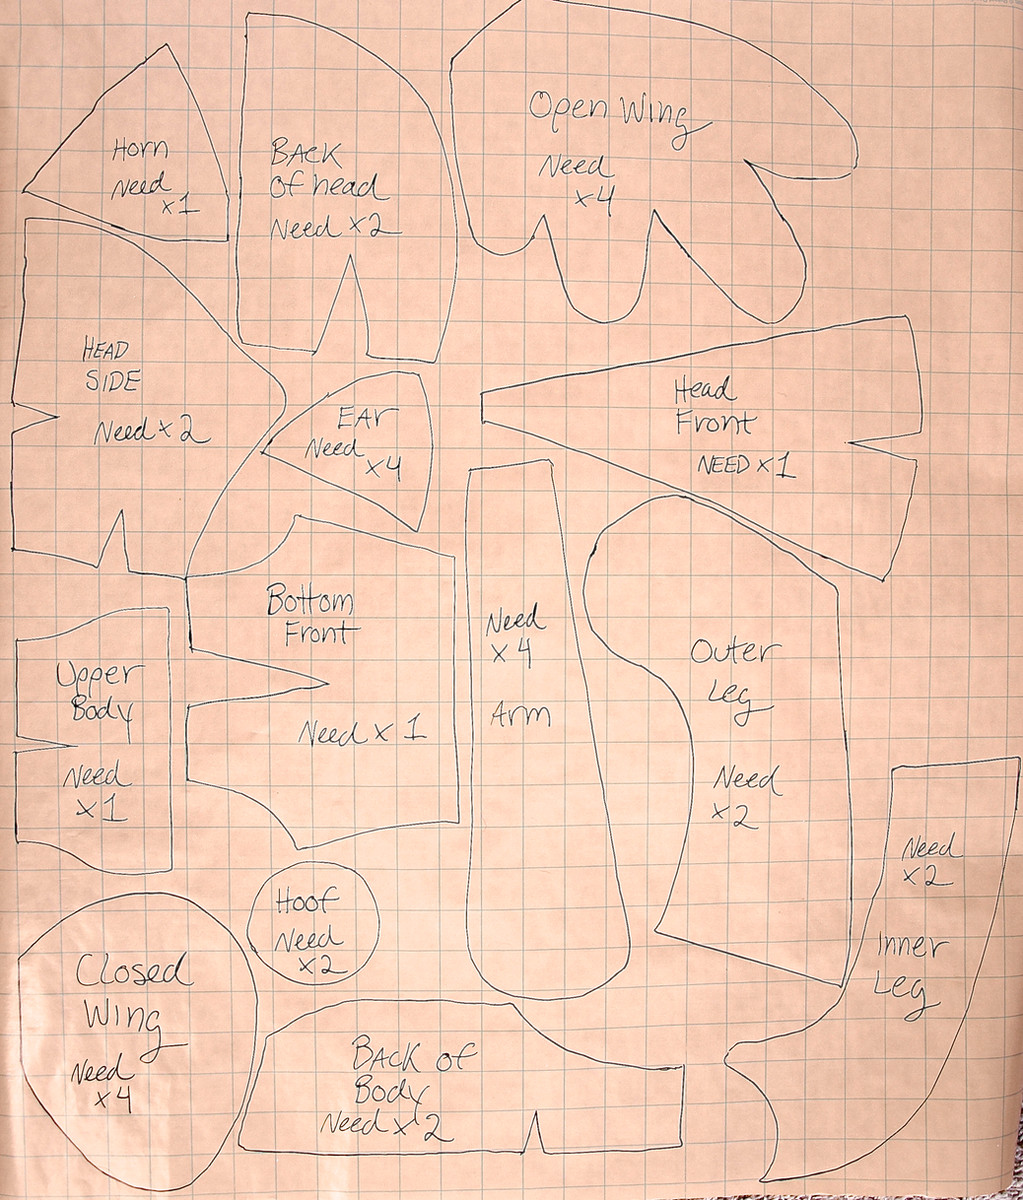 Open Wing
Need
x4
Horn
Need
x1
BACK
of head
Need x2
HEAD
SIDE
Need x2
EAr
Need
x4
Head
Front
NEED x1
Bottom
Front
Need x 1
Need
x4
Arm
Outer
Leg
Need
x2
Upper
Body
Need
x1
Need
x2
Inner
Leg
Hoof
Need
x2
Closed
Wing
Need
x4
BACK of
Body
Need x 2